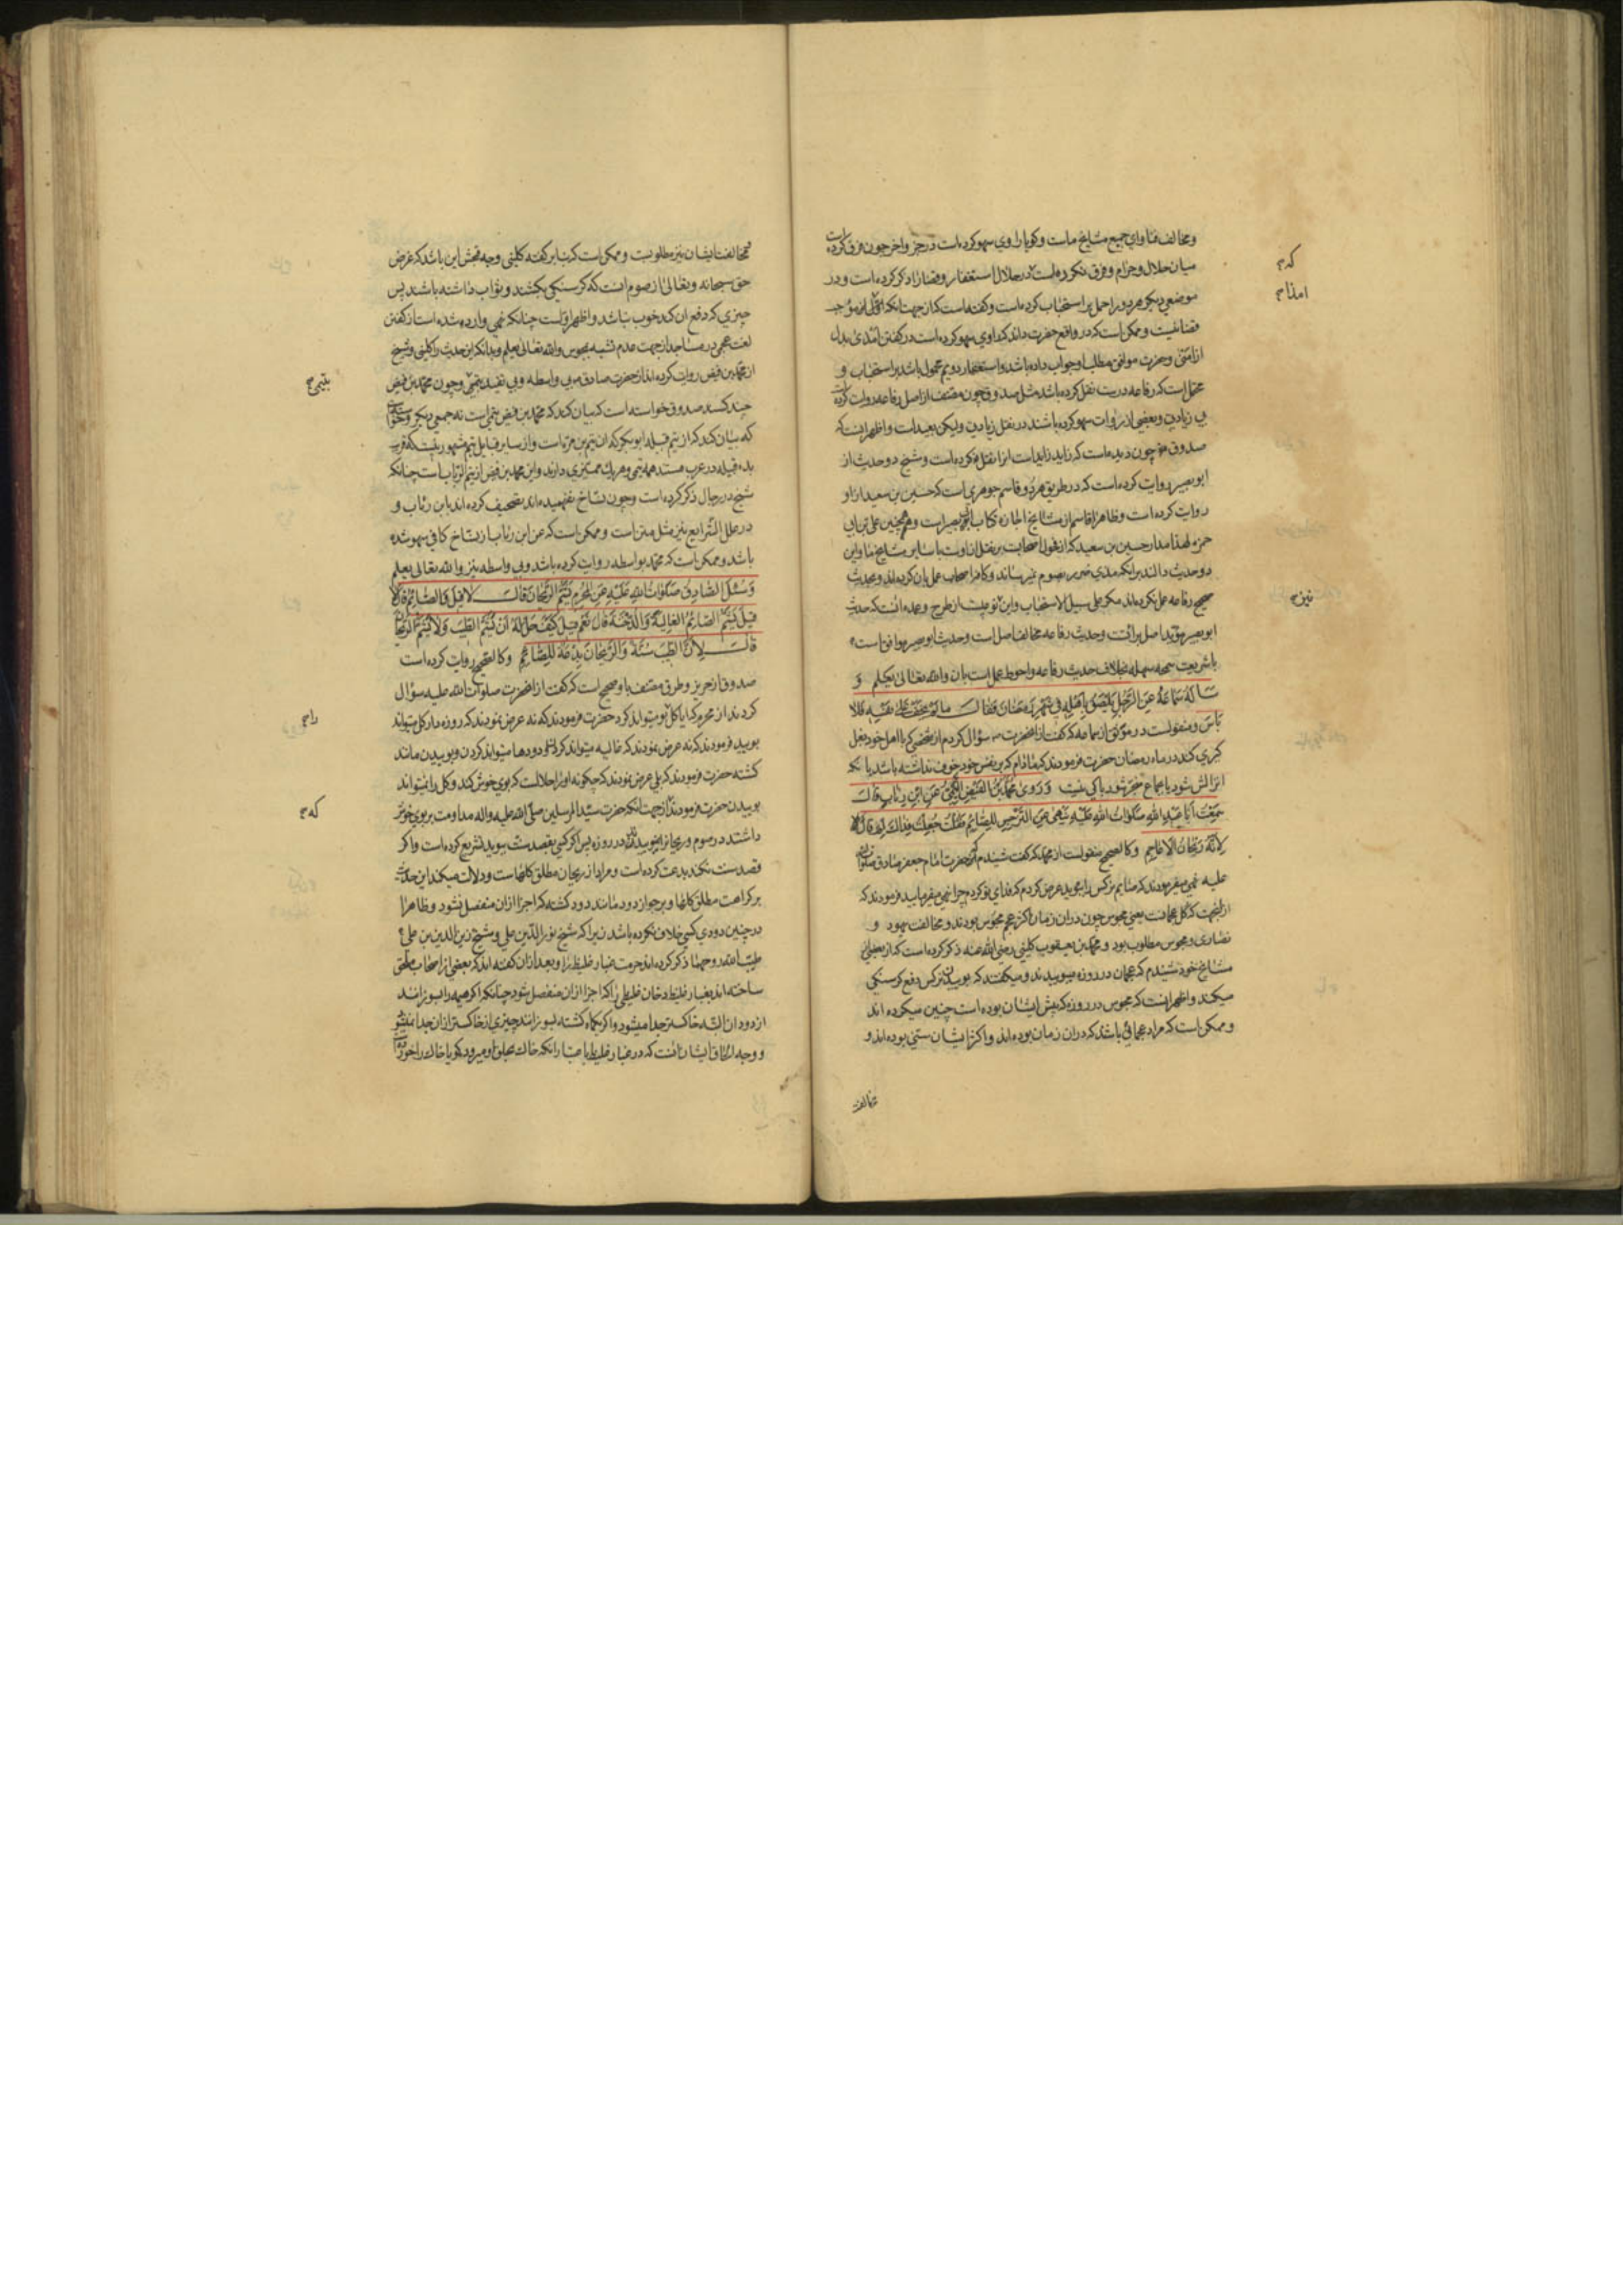 ومخالف فتاوای جمیع مشایخ ماست وکویا راوی سهو کرده است در جزو اخر چون فرق کرده است
میان حلال وحرام وفرق نکرده است در حلال استغفار وقضا را ذکر کرده است ودر
موضعی دیکر هر دو را حمل بر استحباب کرده است وکفته است که از جهت انکه
قضا نیست وممکن است که در واقع حضرت داند که راوی سهو کرده است در کفتن امذی بدل
از امنی وحضرت موافق مطلب او جواب داده باشد واستغفار دویم محمول باشد بر استحباب و
محتمل است که رفاعه درست نقل کرده باشد مثل صدوق چون مصنف از اصل رفاعه روایت کرده است
بی زیادتی وبعضی از روات سهو کرده باشند در نقل زیادتی ولیکن بعید است واظهر اینست که
صدوق چون دیده است که زاید زاید است انرا نقل نکرده است وشیخ دو حدیث از
ابو بصیر روایت کرده است که در طریق هر دو قاسم جوهری است که حسین بن سعید از او
روایت کرده است وظاهرا قاسم از مشایخ اجازه کتاب ابو بصیر است وهمچنین علی بن ابی
حمزه لهذا مدار حسین بن سعید که از فحول اصحابست بر نقل از اوست با سایر مشایخ ما واین
دو حدیث دالند بر انکه مذی ضرر بصوم نمیرساند وکافه اصحاب عمل بان کرده اند وبحدیث
صحیح رفاعه عمل نکرده اند مکر علی سبیل الاستحباب واین نوعیست از طرح وعمده انست که حدیث
ابو بصیر مؤید اصل برائت وحدیث رفاعه مخالف اصل است وحدیث ابو بصیر موافق است
با شریعت سمحه سهله بخلاف حدیث رفاعه واحوط عمل است بان والله تعالی یعلم وَ
سَأَلَهُ سَمَاعَةُ عَنِ الرَّجُلِ یَلْصَقُ بِاَهْلِهِ فِی شَهْرِ رَمَضَانَ فَقَالَ مَا لَمْ یَخَفْ عَلَی نَفْسِهِ فَلَا
بَأْسَ ومنقولست در موثق از سماعه که کفت از انحضرت سؤال کردم از شخصی که با اهل خود بغل
کیری کند در ماه رمضان حضرت فرمودند که مادام که بر نفس خود خوف نداشته باشد بانکه
انزالش شود یا بجماع منجر شود باکی نیست وَرَوَی مُحَمَّدُ بْنُ الْفَیْضِ التَّیْمِیُّ عَنِ ابْنِ رِئَابٍ قَالَ
سَمِعْتُ اَبَا عَبْدِ اللهِ صَلَوَاتُ اللهِ عَلَیْهِ یَنْهَی عَنِ النَّرْجِسِ لِلصَّائِمِ فَقُلْتُ جُعِلْتُ فِدَاكَ لِمَ قَالَ
لِاَنَّهُ رَیْحَانُ الْاَعَاجِمِ وکالصحیح منقولست از محمد که کفت شنیدم که حضرت امام جعفر صادق صلوات الله
علیه نهی میفرمودند که صایم نرکس را ببوید عرض کردم که فدای تو کردم چرا نهی میفرمایید فرمودند که
از انجهت که کل عجمانست یعنی مجوس چون دران زمان اکثر عجم مجوس بودند ومخالفت یهود و
نصاری ومجوس مطلوب بود ومحمد بن یعقوب کلینی رضی الله عنه ذکر کرده است که از بعضی
مشایخ خود شنیدم که عجمان در روزه میبوییدند ومیکفتند که بوییدن نرکس دفع کرسنکی
میکند واظهر اینست که مجوس در روزه که پیش ایشان بوده است چنین میکرده اند
وممکن است که مراد عجمانی باشد که دران زمان بوده اند واکثر ایشان سنی بوده اند و
مخالفت
که
امذا
نیز
مخالفت ایشان نیز مطلوبست وممکن است که بنابر کفته کلینی وجه قبحش این باشد که غرض
حق سبحانه وتعالی از صوم انست که کرسنکی بکشند وثواب داشته باشند پس
چیزی که دفع ان کند خوب نباشد واظهر اولست چنانکه نهی وارد شده است از کفتن
لغت عجمی در مساجد از جهت عدم تشبه بمجوس والله تعالی یعلم وبدانکه این حدیث را کلینی وشیخ
از محمد بن فیض روایت کرده اند از حضرت صادق بی واسطه وبی تقیید بتیمی وچون محمد بن فیض
چند کسند صدوق خواسته است که بیان کند که محمد بن فیض تیمی است نه جمعی دیکر
که بیان کند که از تیم قبیله ابو بکر که ان تیم بن مره است واز سایر قبایل تیم مشهور نیست که قریب
بده قبیله در عرب هستند همه تیمی وهر یك ممیزی دارند واین محمد بن فیض از تیم الرباب است چنانکه
شیخ در رجال ذکر کرده است وچون نساخ نفهمیده اند تصحیف کرده اند بابن رئاب و
در علل الشرایع نیز مثل متن است وممکن است که عن ابن رئاب از نساخ کافی سهو شده
باشد وممکن است که محمد بواسطه روایت کرده باشد وبی واسطه نیز والله تعالی یعلم
وَسُئِلَ الصَّادِقُ صَلَوَاتُ اللهِ عَلَیْهِ عَنِ الْمُحْرِمِ یَشَمُّ الرَّیْحَانَ قَالَ لَا قِیلَ فَالصَّائِمُ قَالَ لَا
قِیلَ یَشَمُّ الصَّائِمُ الْغَالِیَةَ وَالدُّخْنَةَ قَالَ نَعَمْ قِیلَ کَیْفَ حَلَّ لَهُ اَنْ یَشَمَّ الطِّیبَ وَلَا یَشَمُّ الرَّیْحَانَ
قَالَ لِاَنَّ الطِّیبَ سُنَّةٌ وَالرَّیْحَانَ بِدْعَةٌ لِلصَّائِمِ وکالصحیح روایت کرده است
صدوق از حریز وطرق مصنف باو صحیح است که کفت از انحضرت صلوات الله علیه سؤال
کردند از محرم که ایا کل بو میتواند کرد حضرت فرمودند که نه عرض نمودند که روزه دار کل میتواند
بویید فرمودند که نه عرض نمودند که غالیه میتواند کردن ودودها میتواند کردن وبوییدن مانند
کشته حضرت فرمودند که بلی عرض نمودند که چکونه او را حلالست که بوی خوش کند وکل را نمیتواند
بوییدن حضرت فرمودند از جهت انکه حضرت سید المرسلین صلی الله علیه واله مداومت بر بوی خوش
داشتند در صوم وریحان را نمیبوییدند در روزه پس اکر کسی بقصد سنت ببوید تشریع کرده است واکر
قصد سنت نکند بدعت کرده است ومراد از ریحان مطلق کلهاست ودلالت میکند این حدیث
بر کراهت مطلق کلها وبر جواز دود مانند دود کشته که اجزا ازان منفصل نشود وظاهرا
در چنین دودی کسی خلاف نکرده باشد زیرا که شیخ نور الدین علی وشیخ زین الدین بن علی
طیب الله روحهما ذکر کرده اند حرمت غبار غلیظ را وبعد ازان کفته اند که بعضی از اصحاب ملحق
ساخته اند بغبار غلیظ دخان غلیظی را که اجزا ازان منفصل شود چنانکه اکر هیمه را بسوزانند
از دود ان البته خاکستر جدا میشود واکر یکماه کشته بسوزانند چیزی از خاکستر ازان جدا نمیشود
ووجه الحاق ایشان انست که در غبار غلیظ یا هبا را نکه خاك بحلق او میرود کویا خاك را خورده است
بتیمی
را
که